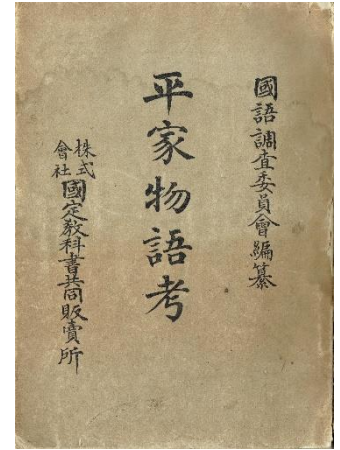 國語調査委員會編纂
平家物語考
株式會社國定教科書共同販賣所